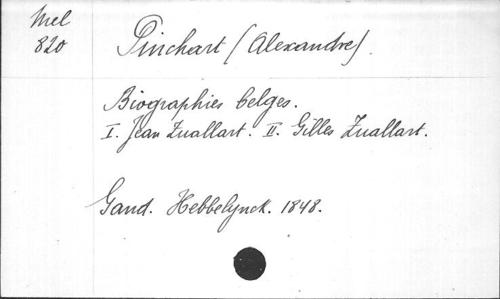 Mel
820
Pinchart (Alexandre).
Biographies belges.
I. Jean Zuallart. II. Gilles Zuallart.
Gand. Hebbelynck. 1848.